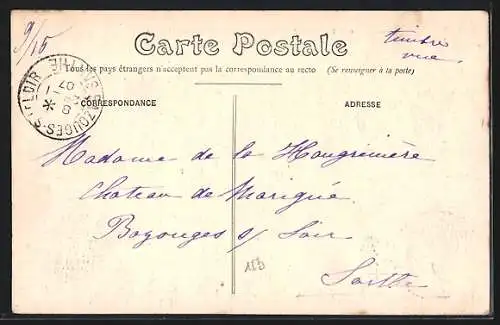 9/15
Carte Postale
timbre
vue
Tous les pays étrangers n'acceptent pas la correspondance au recto (Se renseigner à la poste)
CORRESPONDANCE
ADRESSE
Madame de la Hougrenière
Chateau de Marigné
Bazouges s/ Loir
Sarthe